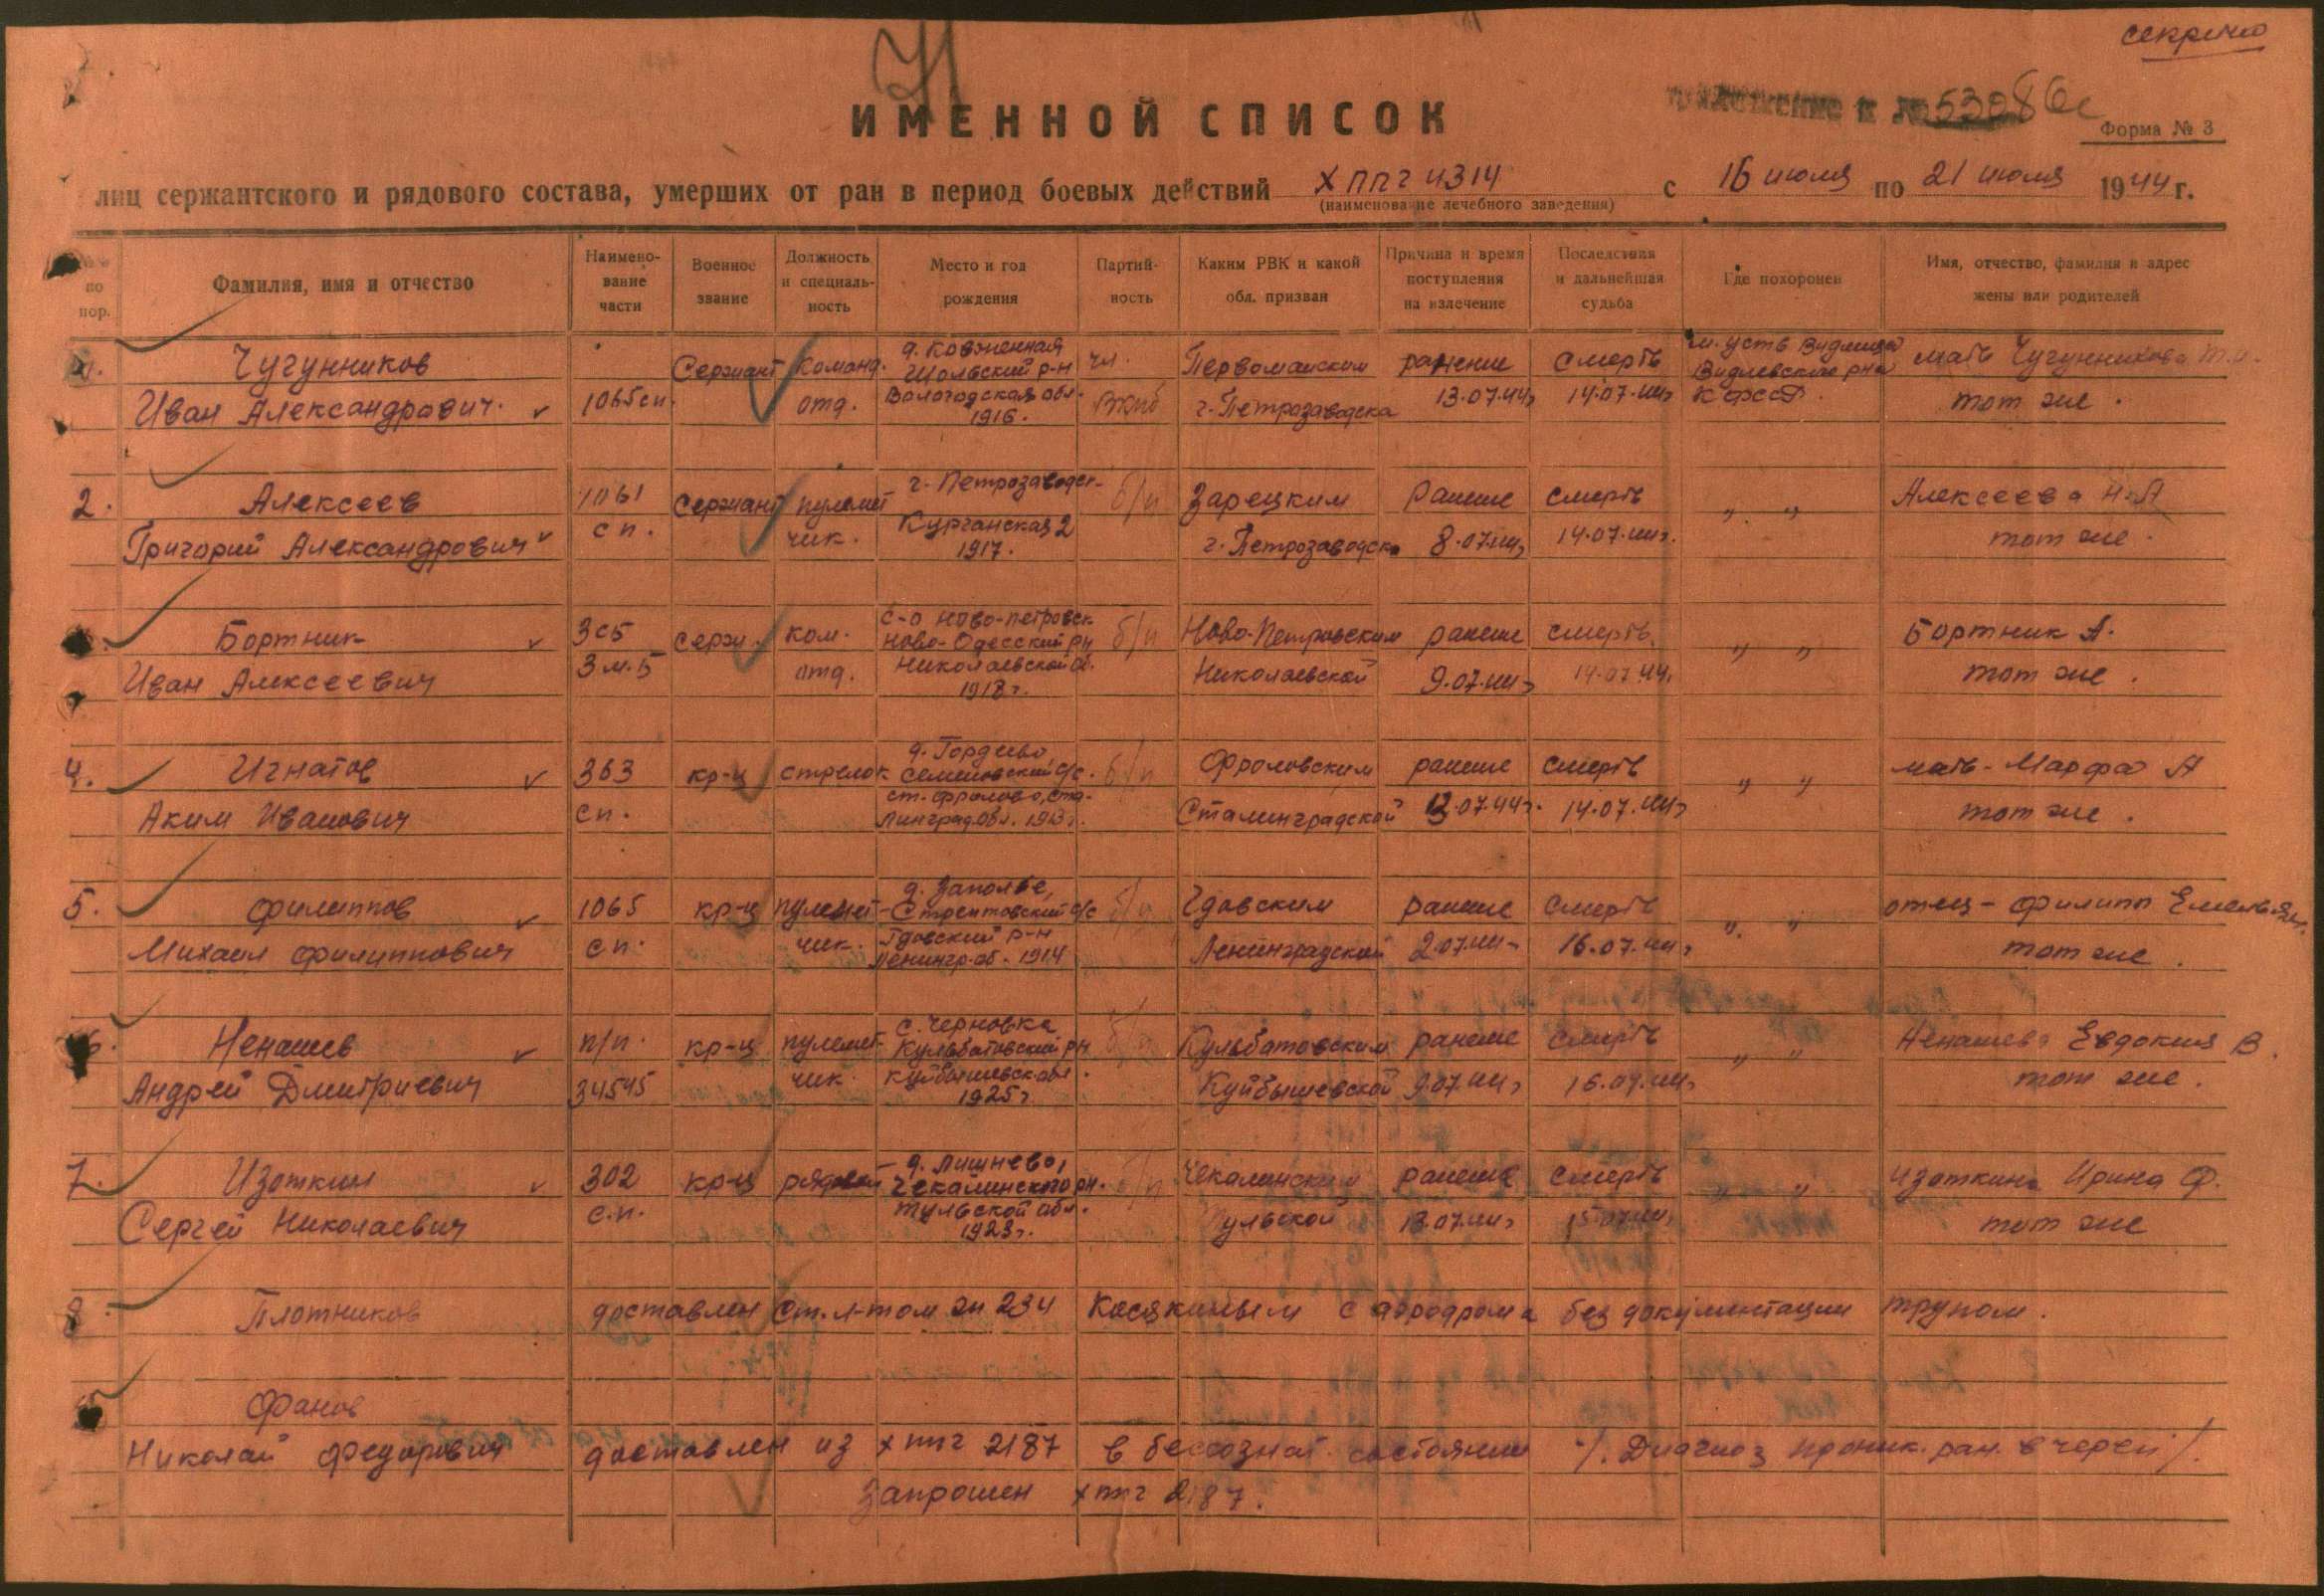 секретно
ИМЕННОЙ СПИСОК
Приложение к № 53086с
Форма № 3
лиц сержантского и рядового состава, умерших от ран в период боевых действий хппг 4314 с 16 июля по 21 июля 1944 г.
(наименование лечебного заведения)
№ по пор.
Фамилия, имя и отчество
Наимено-вание части
Военное звание
Должность и специаль-ность
Место и год рождения
Партий-ность
Каким РВК и какой обл. призван
Причина и время поступления на излечение
Последствия и дальнейшая судьба
Где похоронен
Имя, отчество, фамилия и адрес жены или родителей
1.
Чугунников
Иван Александрович.
1065 сп.
Сержант
Команд.
отд.
д. Ковженная
Шольский р-н
Вологодская обл.
1916.
чл.
ВКПб
Первомайским
г. Петрозаводска
ранение
13.07.44г
смерть
14.07.44г
м. Усть Видлица
Видлевского р-на
КФССР.
мать Чугунникова
тот же.
2.
Алексеев
Григорий Александрович
1061
сп.
Сержант
пулемет
чик.
г. Петрозаводск-
Курганская 2
1917.
б/п
Зарецким
г. Петрозаводска
Ранение
8.07.44г
смерть
14.07.44г.
" "
Алексеева Н.А
тот же.
Бортник
Иван Алексеевич
3 сб
3 м.б
серж.
ком.
отд.
с-о Ново-петровск
Ново-Одесский рн
Николаевской об.
1918 г.
б/п
Ново-Петровским
Николаевской
ранение
9.07.44г
смерть.
14.07.44.
" "
Бортник А.
тот же.
4.
Игнатов
Аким Иванович
363
сп.
кр-ц
стрелок
д. Гордеево
с/с.
ст. Фролово, Ста-
линград.обл. 1913г.
б/п
Фроловским
Сталинградской
ранение
13.07.44г.
смерть
14.07.44г
" "
мать - Марфа А
тот же.
5.
Филиппов
Михаил Филиппович
1065
сп.
кр-ц
пулемет-
чик.
д. Заполье,
с/с
Гдовский р-н
Ленингр. об. 1914
б/п
Гдовским
Ленинградской
ранение
2.07.44-
смерть
16.07.44г
" "
отец - Филипп Емельян.
тот же.
6.
Ненашев
Андрей Дмитриевич
п/п.
34545
кр-ц
пулемет-
чик.
с. Черновка
Кульбатовский рн
Куйбышевск.обл.
1925г
б/п
Кульбатовским
Куйбышевской
ранение
9.07.44г
смерть
16.07.44г
" "
Ненашева Евдокия В.
тот же.
7.
Изоткин
Сергей Николаевич
302
с.п.
кр-ц
рядовой
д. Лишнево,
Чекалинского рн.
Тульской обл.
1923г.
б/п
Чекалинский
Тульской
ранение
13.07.44г
смерть
15.07.44г
" "
Изоткина Ирина Ф.
тот же
8.
Плотников
доставлен ст. л-том эг 234 Косякиным с аэродрома без документации трупом.
Фанов
Николай Федорович
доставлен из хппг 2187 в бессознат. состоянии /. Диагноз проник. ран. в череп /.
Запрошен хппг 2187.